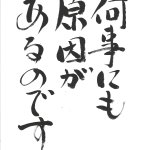 何事にも
原因が
あるのです